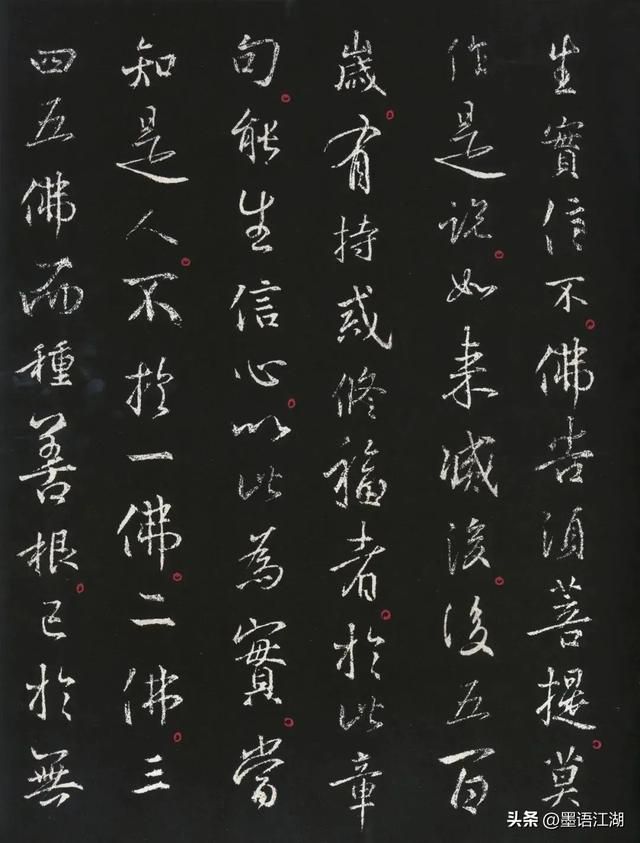 生實信不佛告須菩提莫
作是說如来滅後後五百
歲有持戒修福者於此章
句能生信心以此為實當
知是人不於一佛二佛三
四五佛而種善根已於無
头条 @墨语江湖